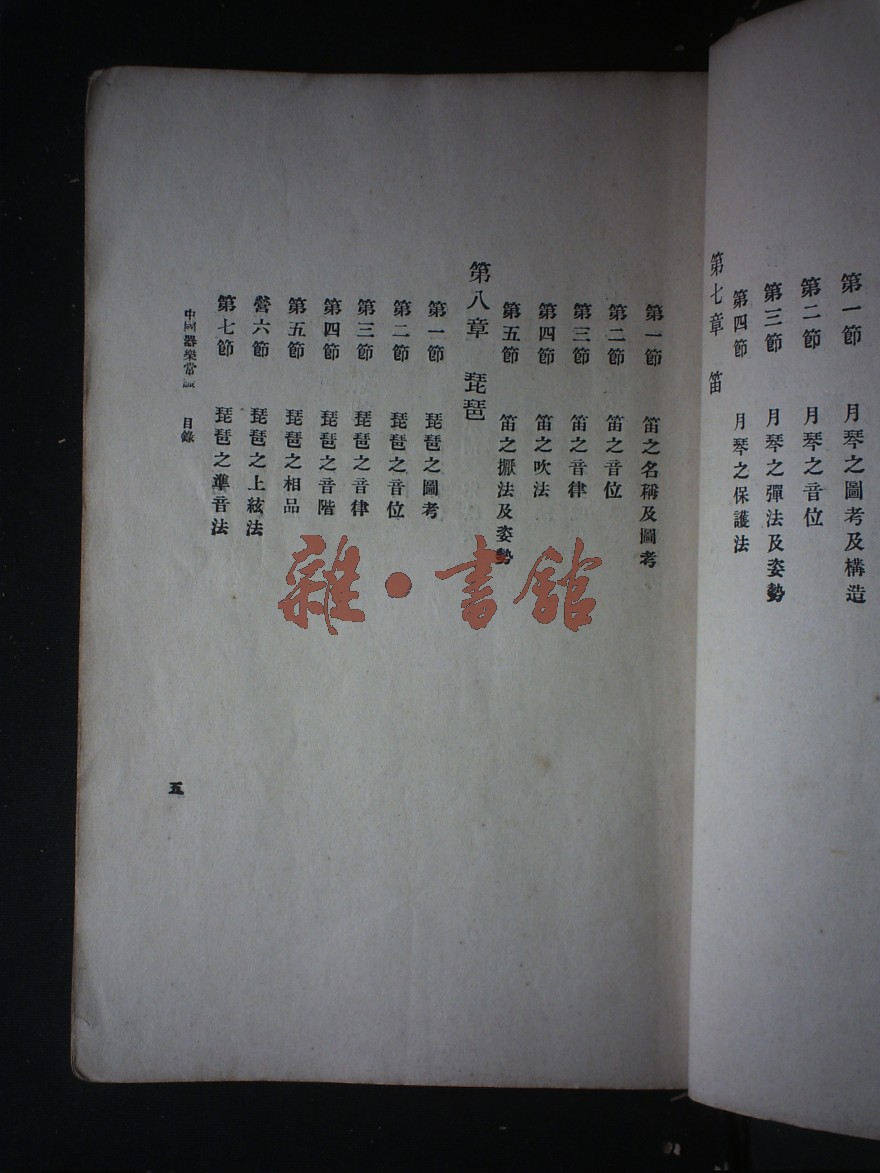 第一節 月琴之圖考及構造
第二節 月琴之音位
第三節 月琴之彈法及姿勢
第四節 月琴之保護法
第七章 笛
第一節 笛之名稱及圖考
第二節 笛之音位
第三節 笛之音律
第四節 笛之吹法
第五節 笛之擫法及姿勢
第八章 琵琶
第一節 琵琶之圖考
第二節 琵琶之音位
第三節 琵琶之音律
第四節 琵琶之音階
第五節 琵琶之相品
營六節 琵琶之上絃法
第七節 琵琶之準音法
中國器樂常 目錄
五
雜·書館